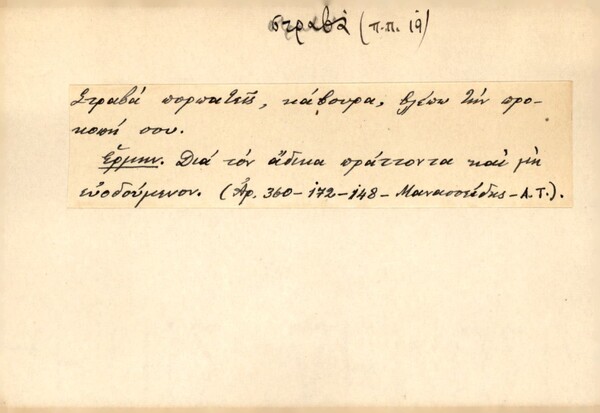 στραβά (π.π. 19)
Στραβά πορπατεῖς, κάβουρα, βλέπω τήν προ-
κοπή σου.
Ἑρμην. Διά τόν ἄδικα πράττοντα καί μή
εὐοδούμενον. (Ἀρ. 360-172-148-Μανασσείδης-Α.Τ.).